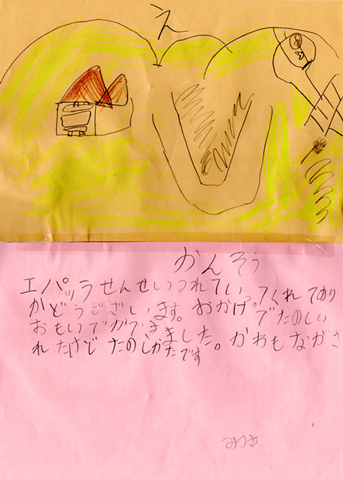 え
かんそう
エパッラせんせいつれていってくれてあり
がどうございます。おかげでたのしい
おもいでができました。かわもながさ
れたけどたのしかたです
みつき